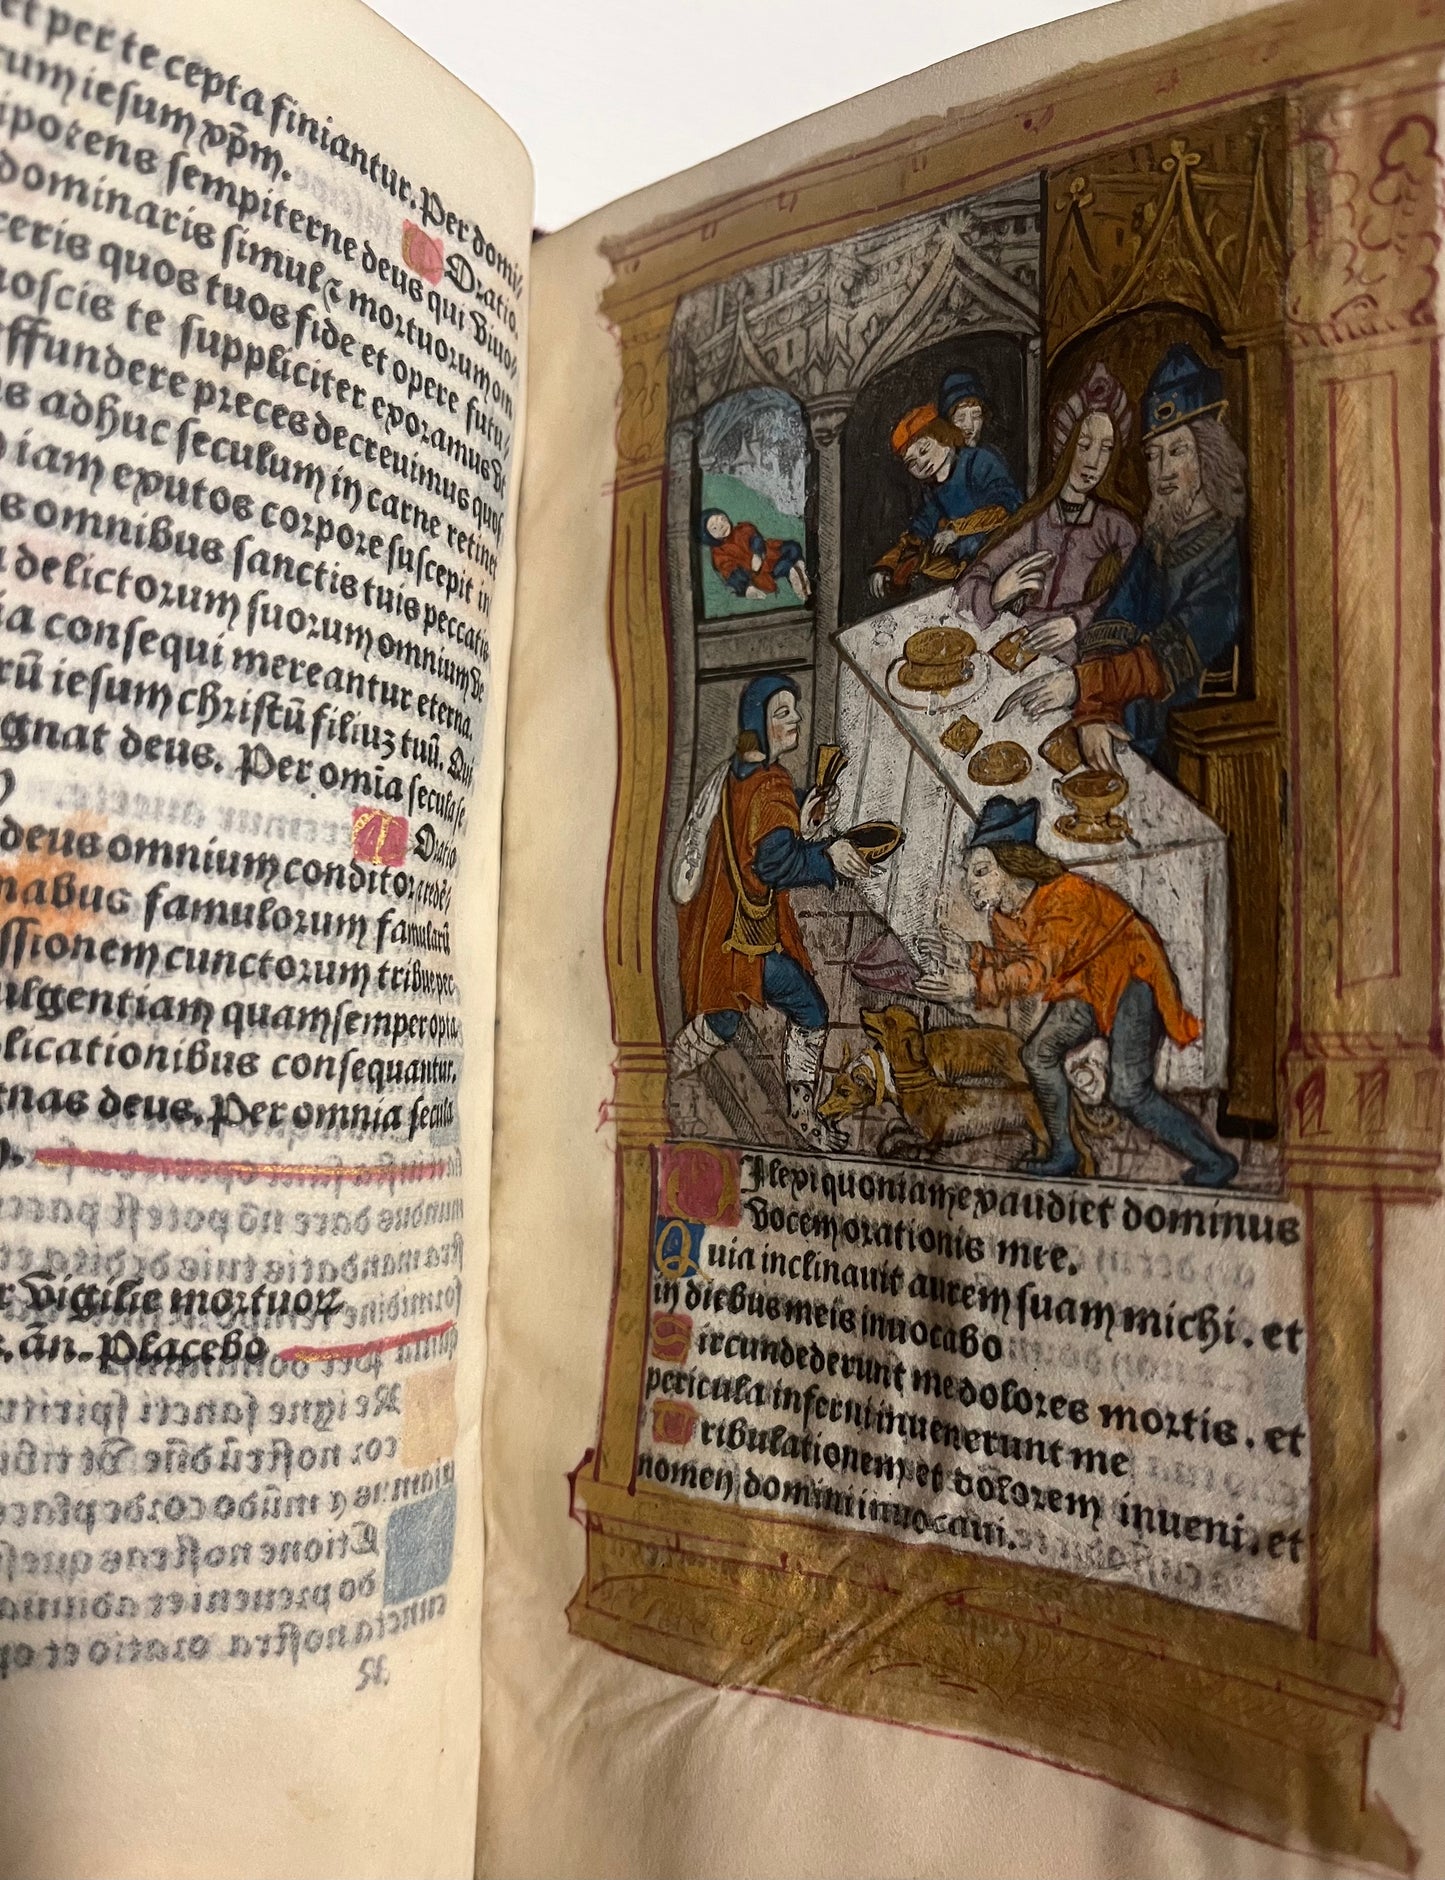 et per te cepta finiantur. Per domi⸗
cum iesum xp̄m. Oratio.
ipotens sempiterne deus qui viuo⸗
dominaris simul ⁊ mortuorum om
quos tuos fide et opere futu⸗
noscis te suppliciter exoramus vt
effundere preces decreuimus quos
adhuc seculum in carne retinet
iam exutos corpore suscepit in
omnibus sanctis tuis peccatis
delictorum suorum omnium ve
consequi mereantur eterna.
iesum christū filiuz tuū. Qui
gnat deus. Per omīa secula se
Oratio
deus omnium conditor ⁊ redē⸗
famulorum famularū
ssionem cunctorum tribue pec
ulgentiam quam semper opta
plicationibus consequantur.
deus. Per omnia secula
Vigilie mortuoꝝ
an̄. Placebo
Dilexi quoniam exaudiet dominus
vocem orationis mee.
Quia inclinauit aurem suam michi. et
in diebus meis inuocabo
Circundederunt me dolores mortis. et
pericula inferni inuenerunt me
Tribulationem et dolorem inueni. et
nomen domini inuocaui.